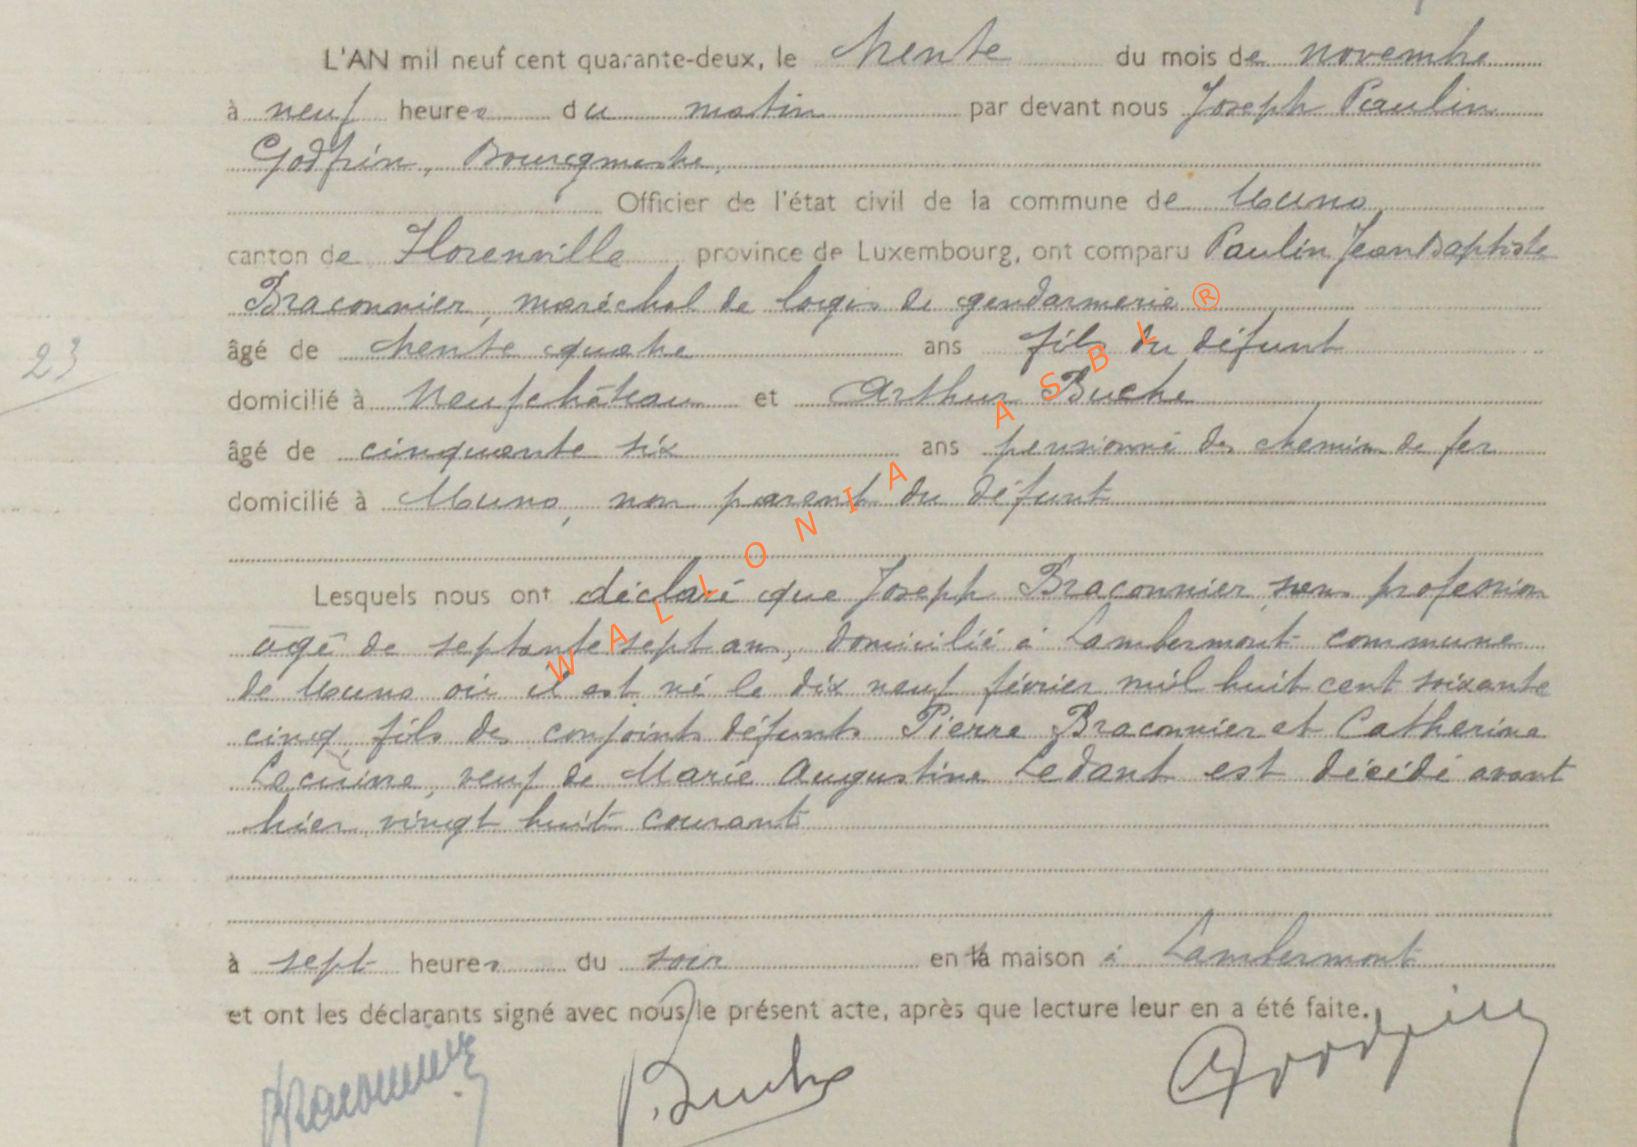 L'AN mil neuf cent quarante-deux, le trente du mois de novembre
à neuf heures du matin par devant nous Joseph Paulin
Godfrin, Bourgmestre,
Officier de l'état civil de la commune de Muno
canton de Florenville province de Luxembourg, ont comparu Paulin Jean Baptiste
Braconnier, maréchal de logis de gendarmerie
âgé de trente quatre ans fils du défunt
23
domicilié à Neufchâteau et Arthur Buche
âgé de cinquante six ans pensionné des chemins de fer
domicilié à Muno, non parent du défunt
WALLONIA ASBL ®
Lesquels nous ont déclaré que Joseph Braconnier sans profession
âgé de septante sept ans, domicilié à Lambermont commune
de Muno où il est né le dix neuf février mil huit cent soixante
cinq, fils des conjoints défunts Pierre Braconnier et Catherine
Lacuine, veuf de Marie Augustine Ledant est décédé avant
hier vingt huit courant
à sept heures du soir en la maison à Lambermont
et ont les déclarants signé avec nous le présent acte, après que lecture leur en a été faite.
Braconnier Buche Godfrin